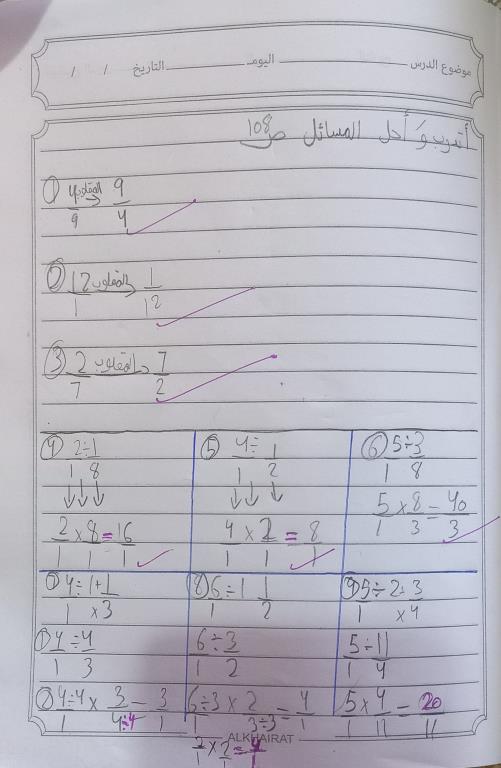 موضوع الدرس اليوم التاريخ / /
أتدرب وأحل المسائل ص108
① 4/9 المقلوب→ 9/4
② 12/1 المقلوب→ 1/12
③ 2/7 المقلوب→ 7/2
④ 2/1 ÷ 1/8
2/1 × 8/1 = 16/1
⑤ 4/1 ÷ 1/2
4/1 × 2/1 = 8/1
⑥ 5/1 ÷ 3/8
5/1 × 8/3 = 40/3
⑦ 4/1 ÷ 1 + 1/×3
① 4/1 ÷ 4/3
② 4÷4/1 × 3/4÷4 = 3/1
⑧ 6/1 ÷ 1 1/2
6/1 ÷ 3/2
6÷3/1 × 2/3÷3 = 4/1
2/1 × 2/1 = 4/1
⑨ 5/1 ÷ 2+3/×4
5/1 ÷ 11/4
5/1 × 4/11 = 20/11
ALKHAIRAT